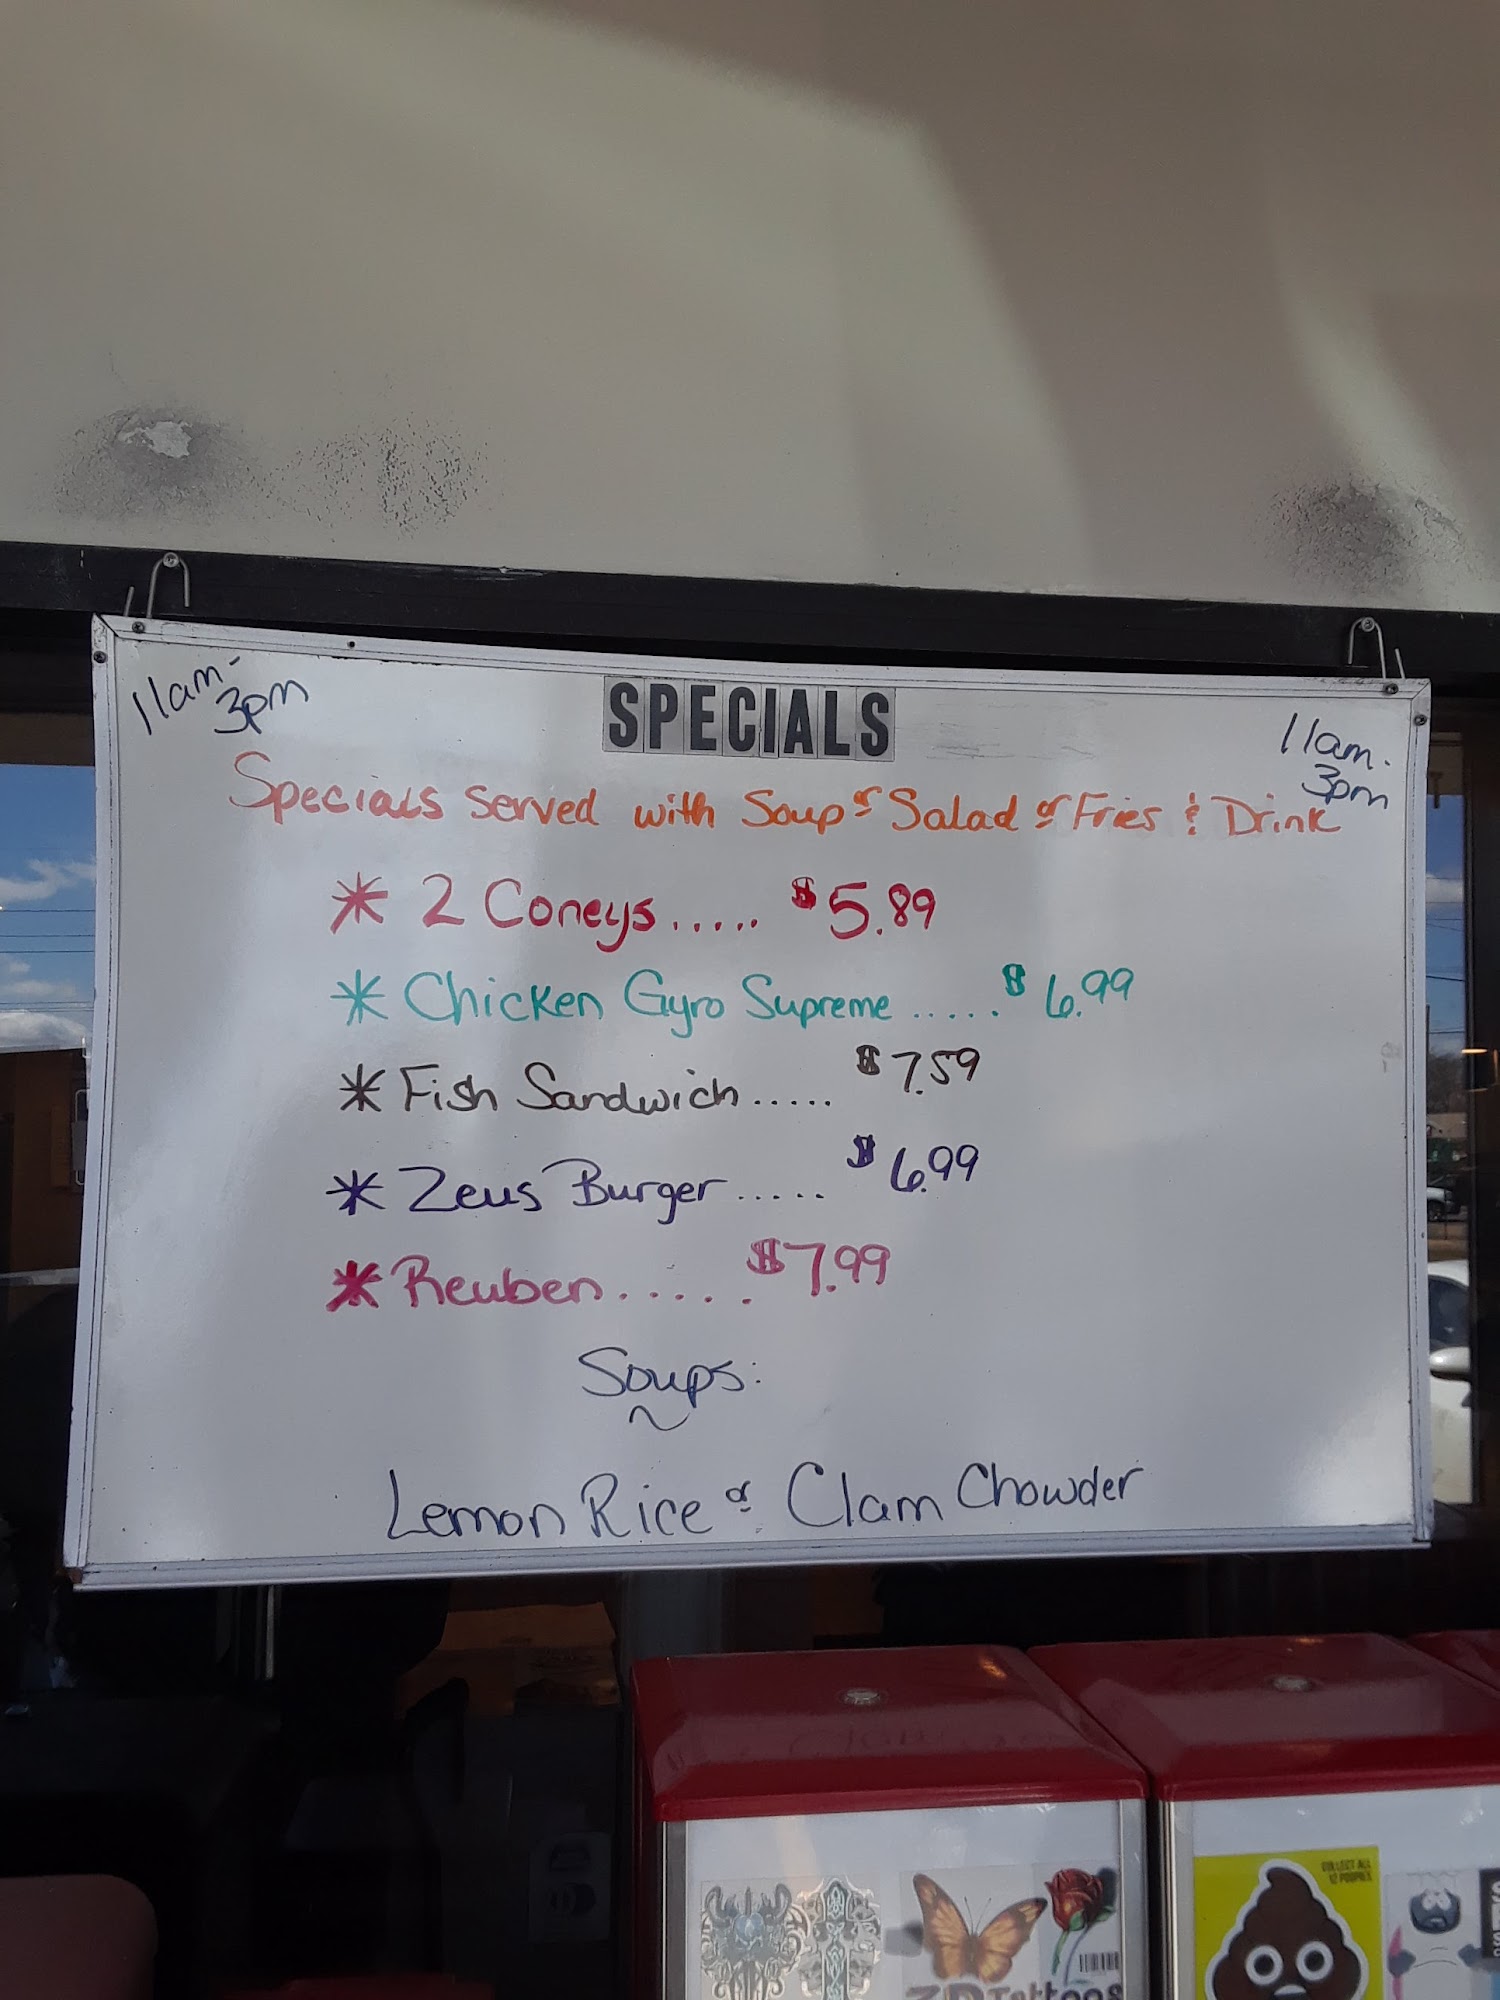 11am-
3pm
SPECIALS
11am.
3pm
Specials served with Soup or Salad or Fries & Drink
* 2 Coneys..... $5.89
* Chicken Gyro Supreme ..... $6.99
* Fish Sandwich..... $7.59
* Zeus Burger..... $6.99
* Reuben..... $7.99
Soups:
Lemon Rice or Clam Chowder
COLLECT ALL
12 POOPIES
3D Tattoos